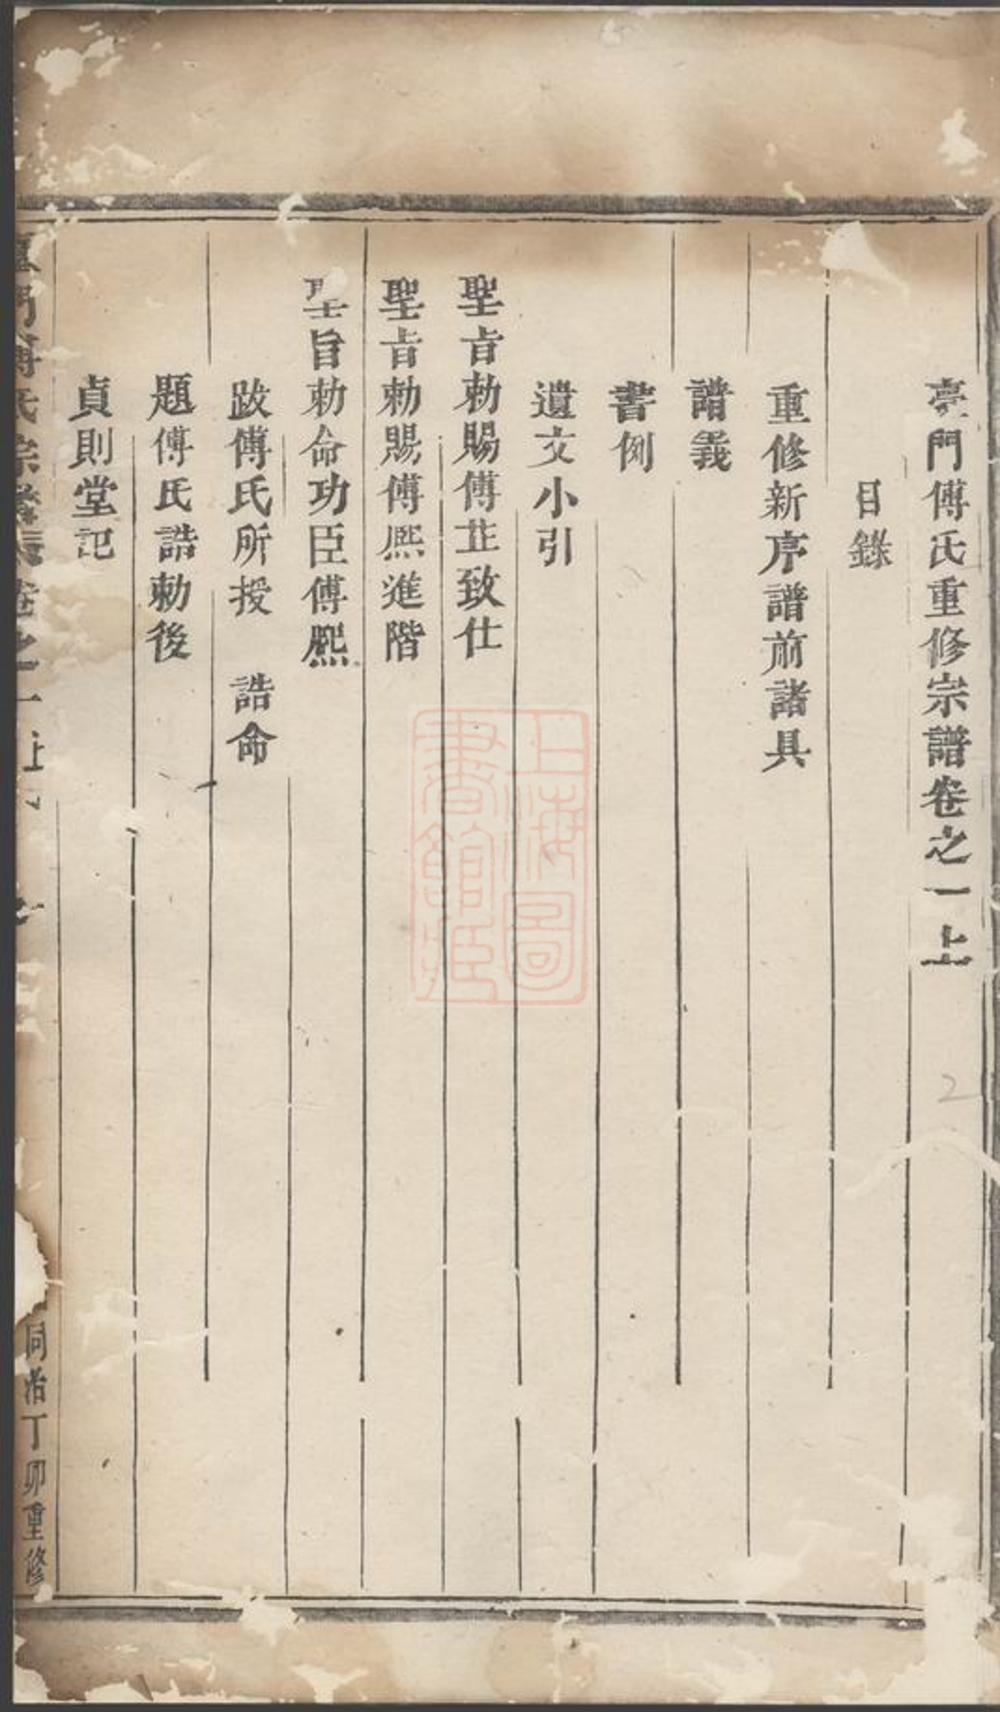 亭門傅氏重修宗譜卷之一上
目錄
重修新序譜前諸具
譜義
書例
遺文小引
聖旨勅賜傅芷致仕
聖旨勅賜傅熈進階
聖旨勅命功臣傅熈
跋傅氏所授　誥命
題傅氏誥勅後
貞則堂記
門傅氏宗譜卷之一上
同治丁卯重修
上海圖書館藏